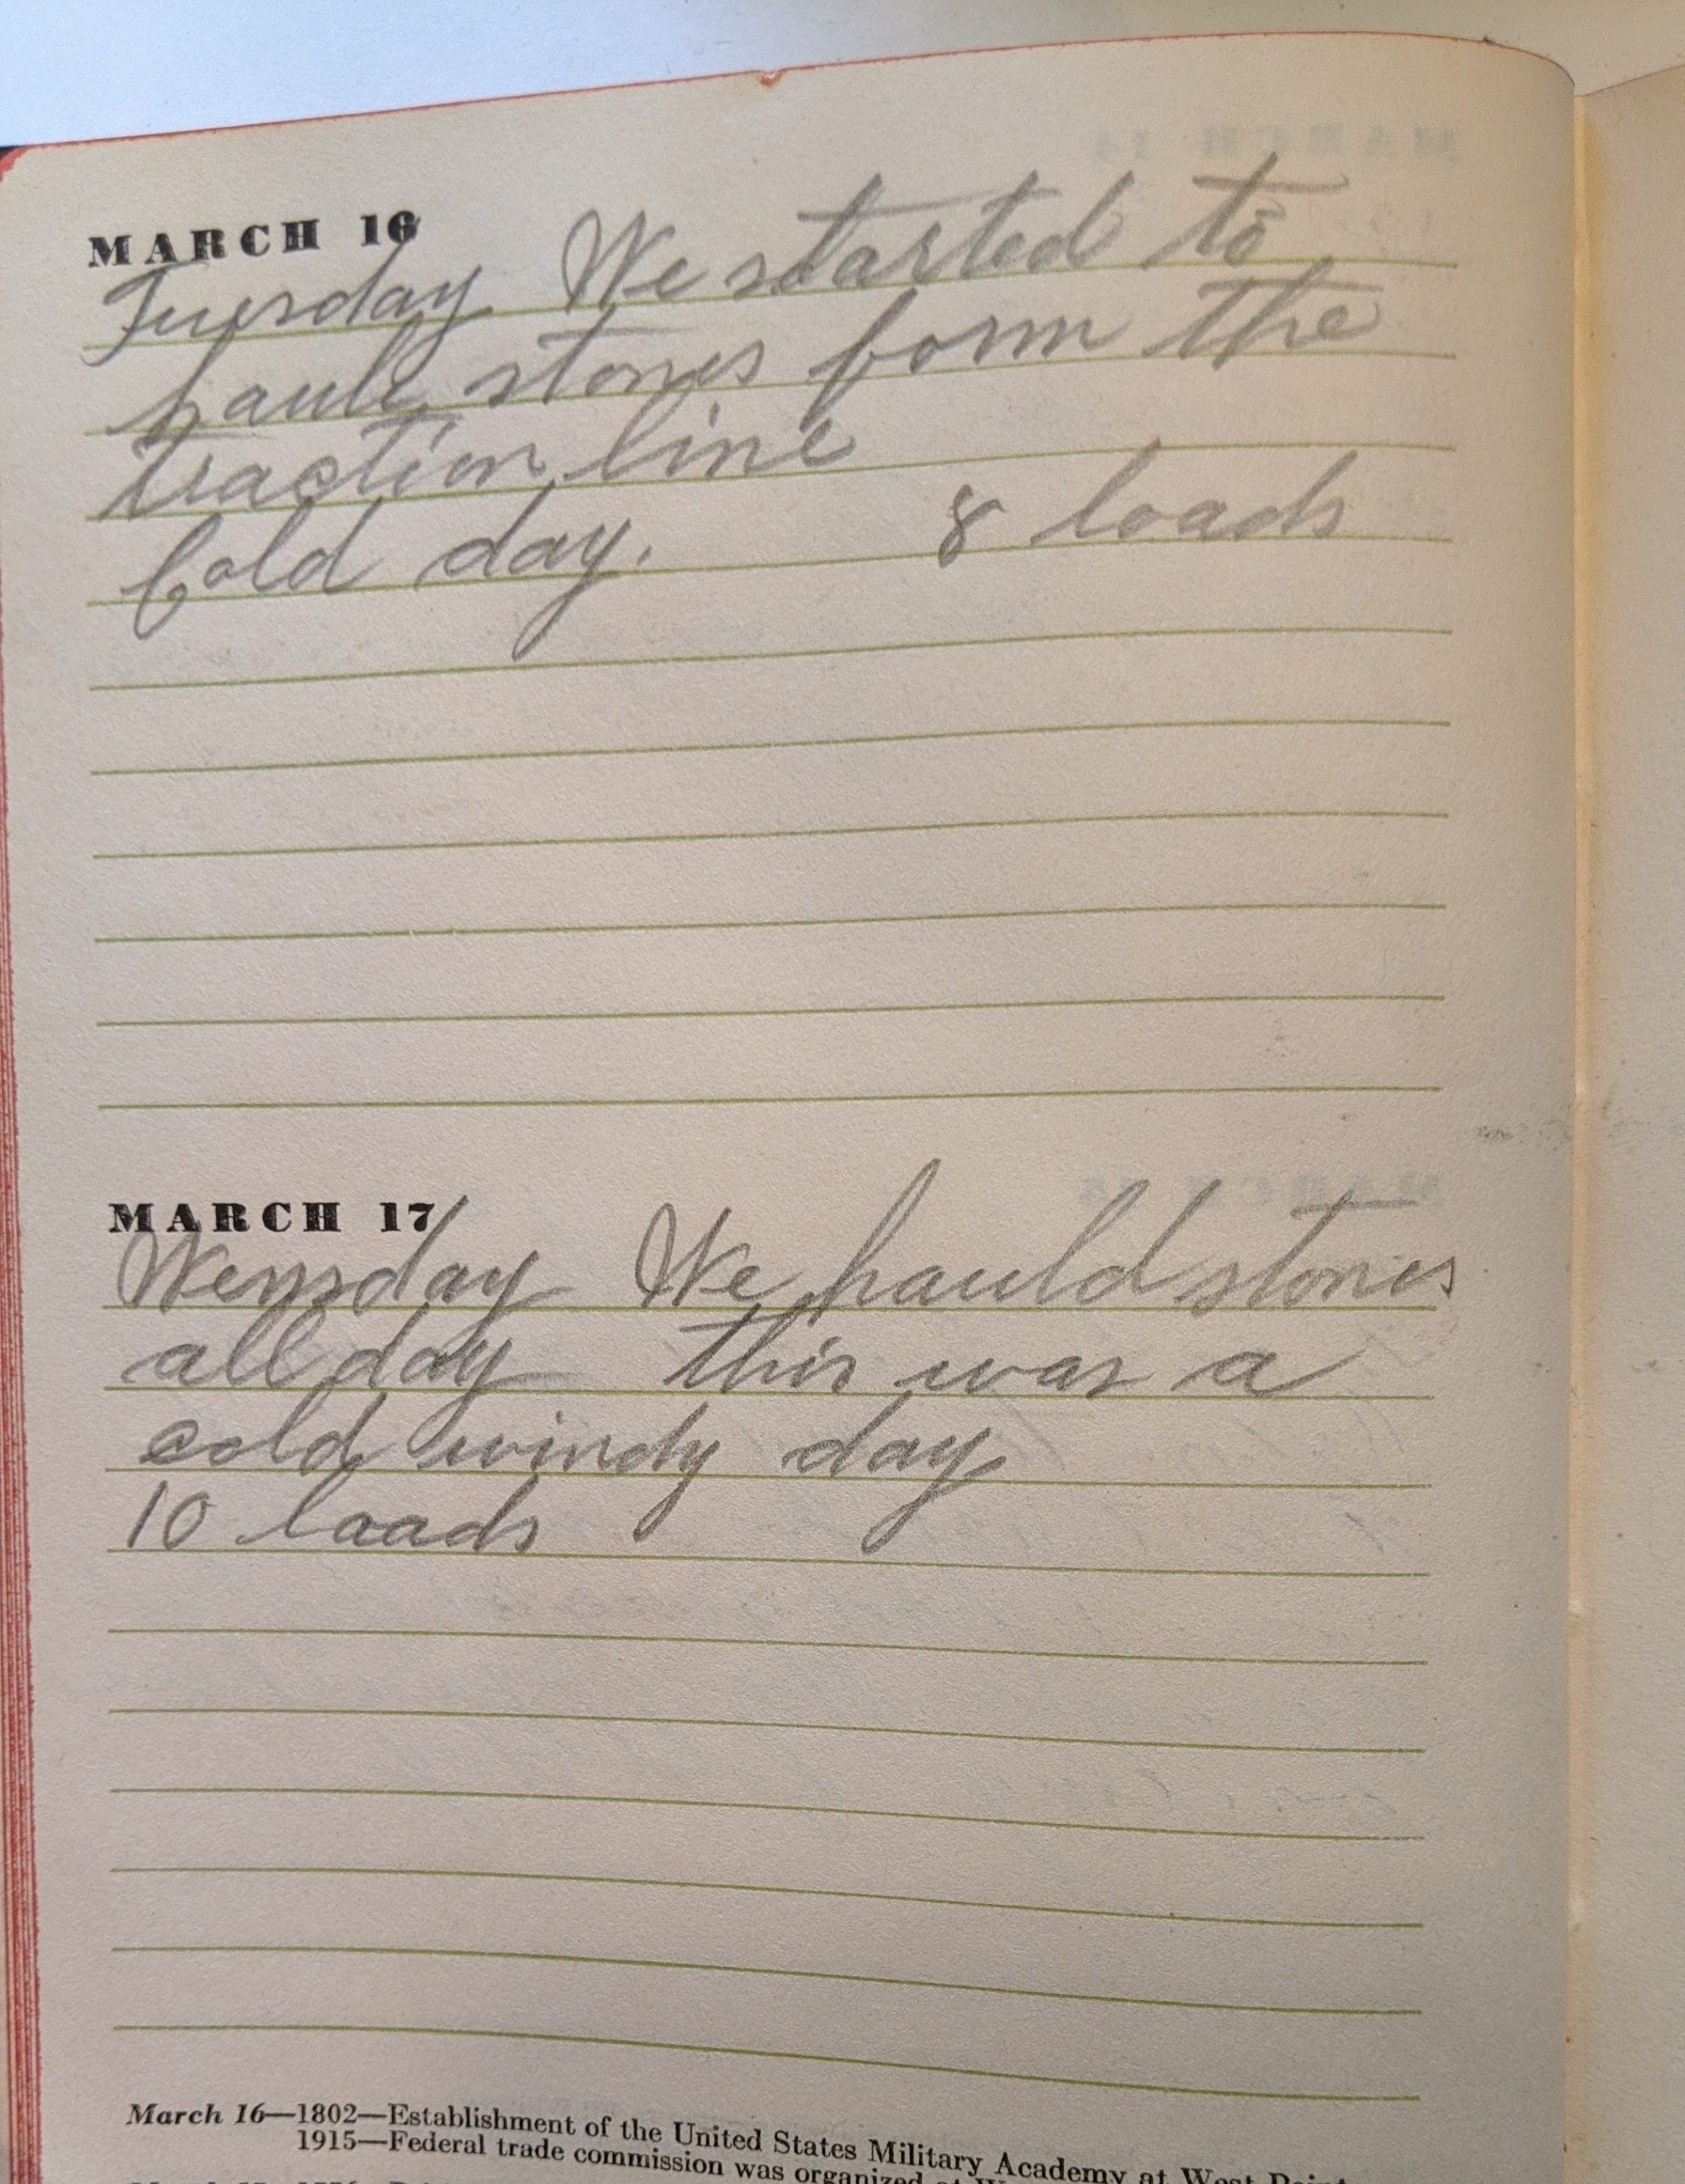 MARCH 16
Tuesday We started to
haule stones form the
traction line
Cold day. 8 loads
MARCH 17
Wensday We hauld stones
all day this was a
cold windy day
10 loads
March 16—1802—Establishment of the United States Military Academy at West Point.
1915—Federal trade commission was organized at